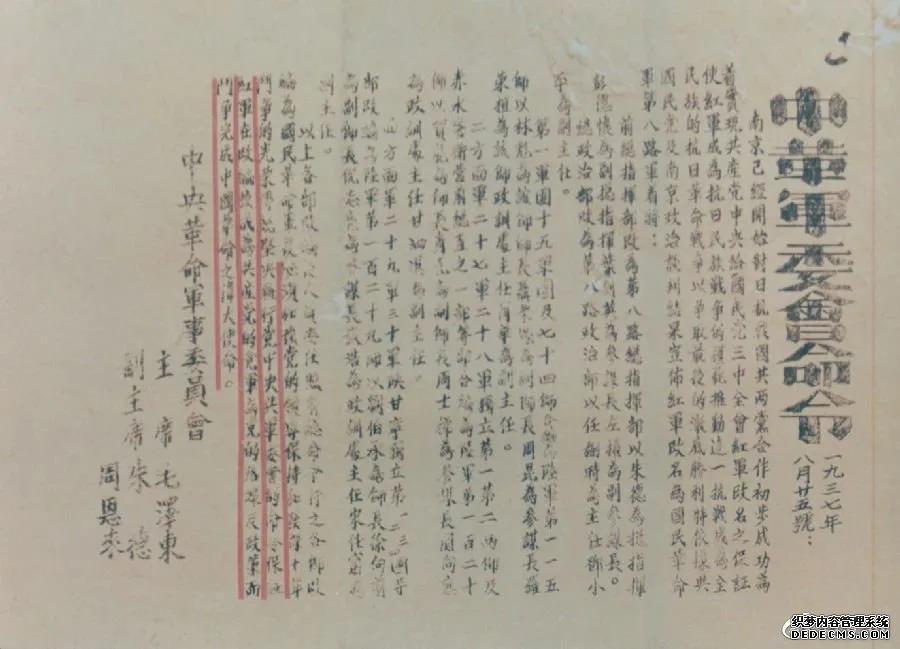 中革軍委會命令
一九三七年
八月廿五號：
南京已經開始對日抗战國共兩黨合作初步成功為
着實現共產党中央給國民党三中全曾紅軍改名之保証
使紅軍成為抗日民族戰争的模范推動這一抗戰成為全
民族的抗日革命戰争以爭取最後的澈底勝利特依據與
國民党及南京政治談判結果宣佈紅軍改名為國民革命
軍第八路軍着將：
前總指揮部改為第八路總指揮部以朱德為總指揮
彭德懷為副總指揮葉劍英為參謀長左權為副參謀長。
總政治部改為第八路政治部以任弼時為主任鄧小
平為副主任。
第一軍團十五軍團及七十四師合編為陸軍第一一五
師以林彪為該師師長聶榮臻為副師長周昆為參謀長羅
榮桓為該師政訓處主任蕭華為副主任。
二方面軍二十七軍二十八軍獨立第一第二兩师及
赤水警衛營前總直之一部等部合編為陸軍第一百二十
師以賀龍為師長蕭克為副師長周士為參謀長關向應
為政訓處主任甘泗淇為副主任。
四方面軍二十九軍三十軍陕甘寧獨立第一二三四等
部改編為陸軍第一百二十九師以劉伯承為師長徐向前
為副師長倪志亮為參謀長張浩為政訓處主任宋任窮為
副主任。
以上各部改編後人員委任照前總命令行之各部改
編為國民革命軍後必須加强党的領導保持和發揚十年
鬥爭的光榮傳統堅决執行党中央與軍委會的命令保证
紅軍在改編後成為共產党的党軍為党的路綫及政策而
鬥爭完成中國革命之偉大使命。
中央革命軍事委員會
主席毛澤東
副主席朱德
周恩來
织梦内容管理系统
DEDECMS.COM